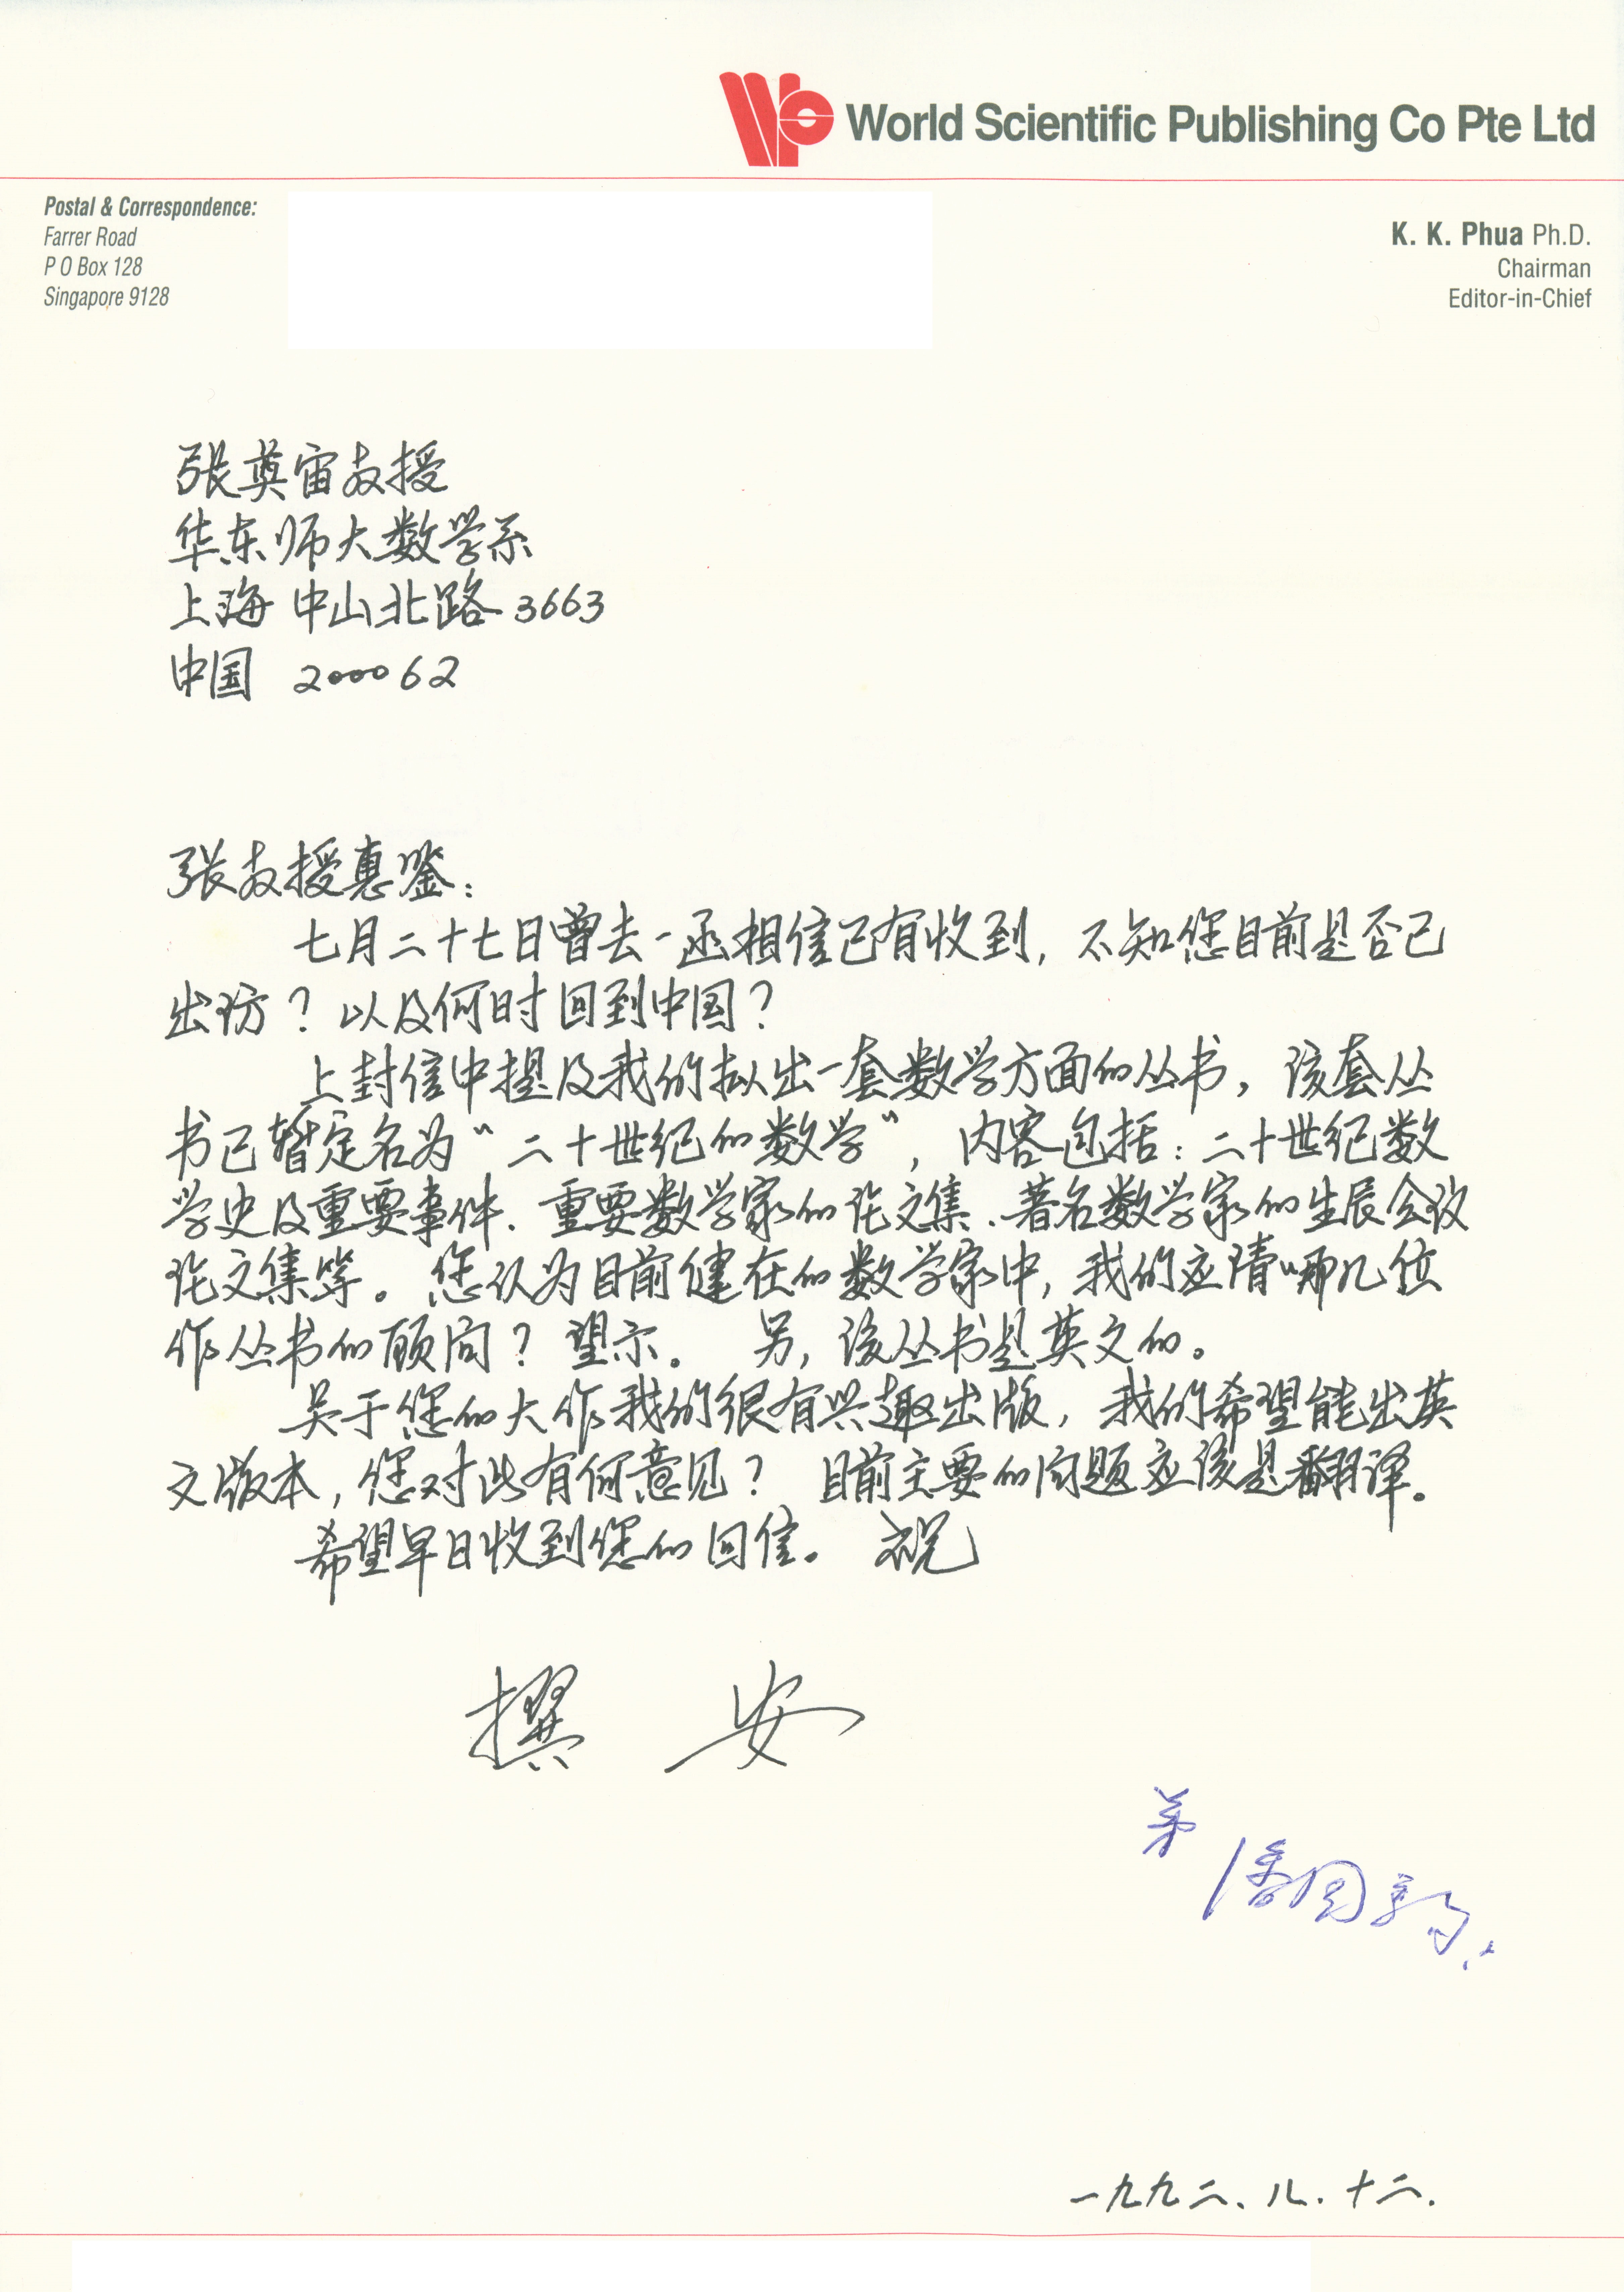 World Scientific Publishing Co Pte Ltd
Postal & Correspondence:
Farrer Road
P O Box 128
Singapore 9128
K. K. Phua Ph.D.
Chairman
Editor-in-Chief
张奠宙教授
华东师大数学系
上海 中山北路 3663
中国 200062
张教授惠鉴：
七月二十七日曾去一函相信已有收到，不知您目前是否已
出访？以及何时回到中国？
上封信中提及我们拟出一套数学方面的丛书，该套丛
书已暂定名为“二十世纪的数学”，内容包括：二十世纪数
学史及重要事件、重要数学家的论文集、著名数学家的生辰会议
论文集等。您认为目前健在的数学家中，我们应请哪几位
作丛书的顾问？望示。 另，该丛书是英文的。
关于您的大作我们很有兴趣出版，我们希望能出英
文版本，您对此有何意见？ 目前主要的问题应该是翻译。
希望早日收到您的回信。 祝
撰 安
弟
潘国驹
一九九二、八、十二.